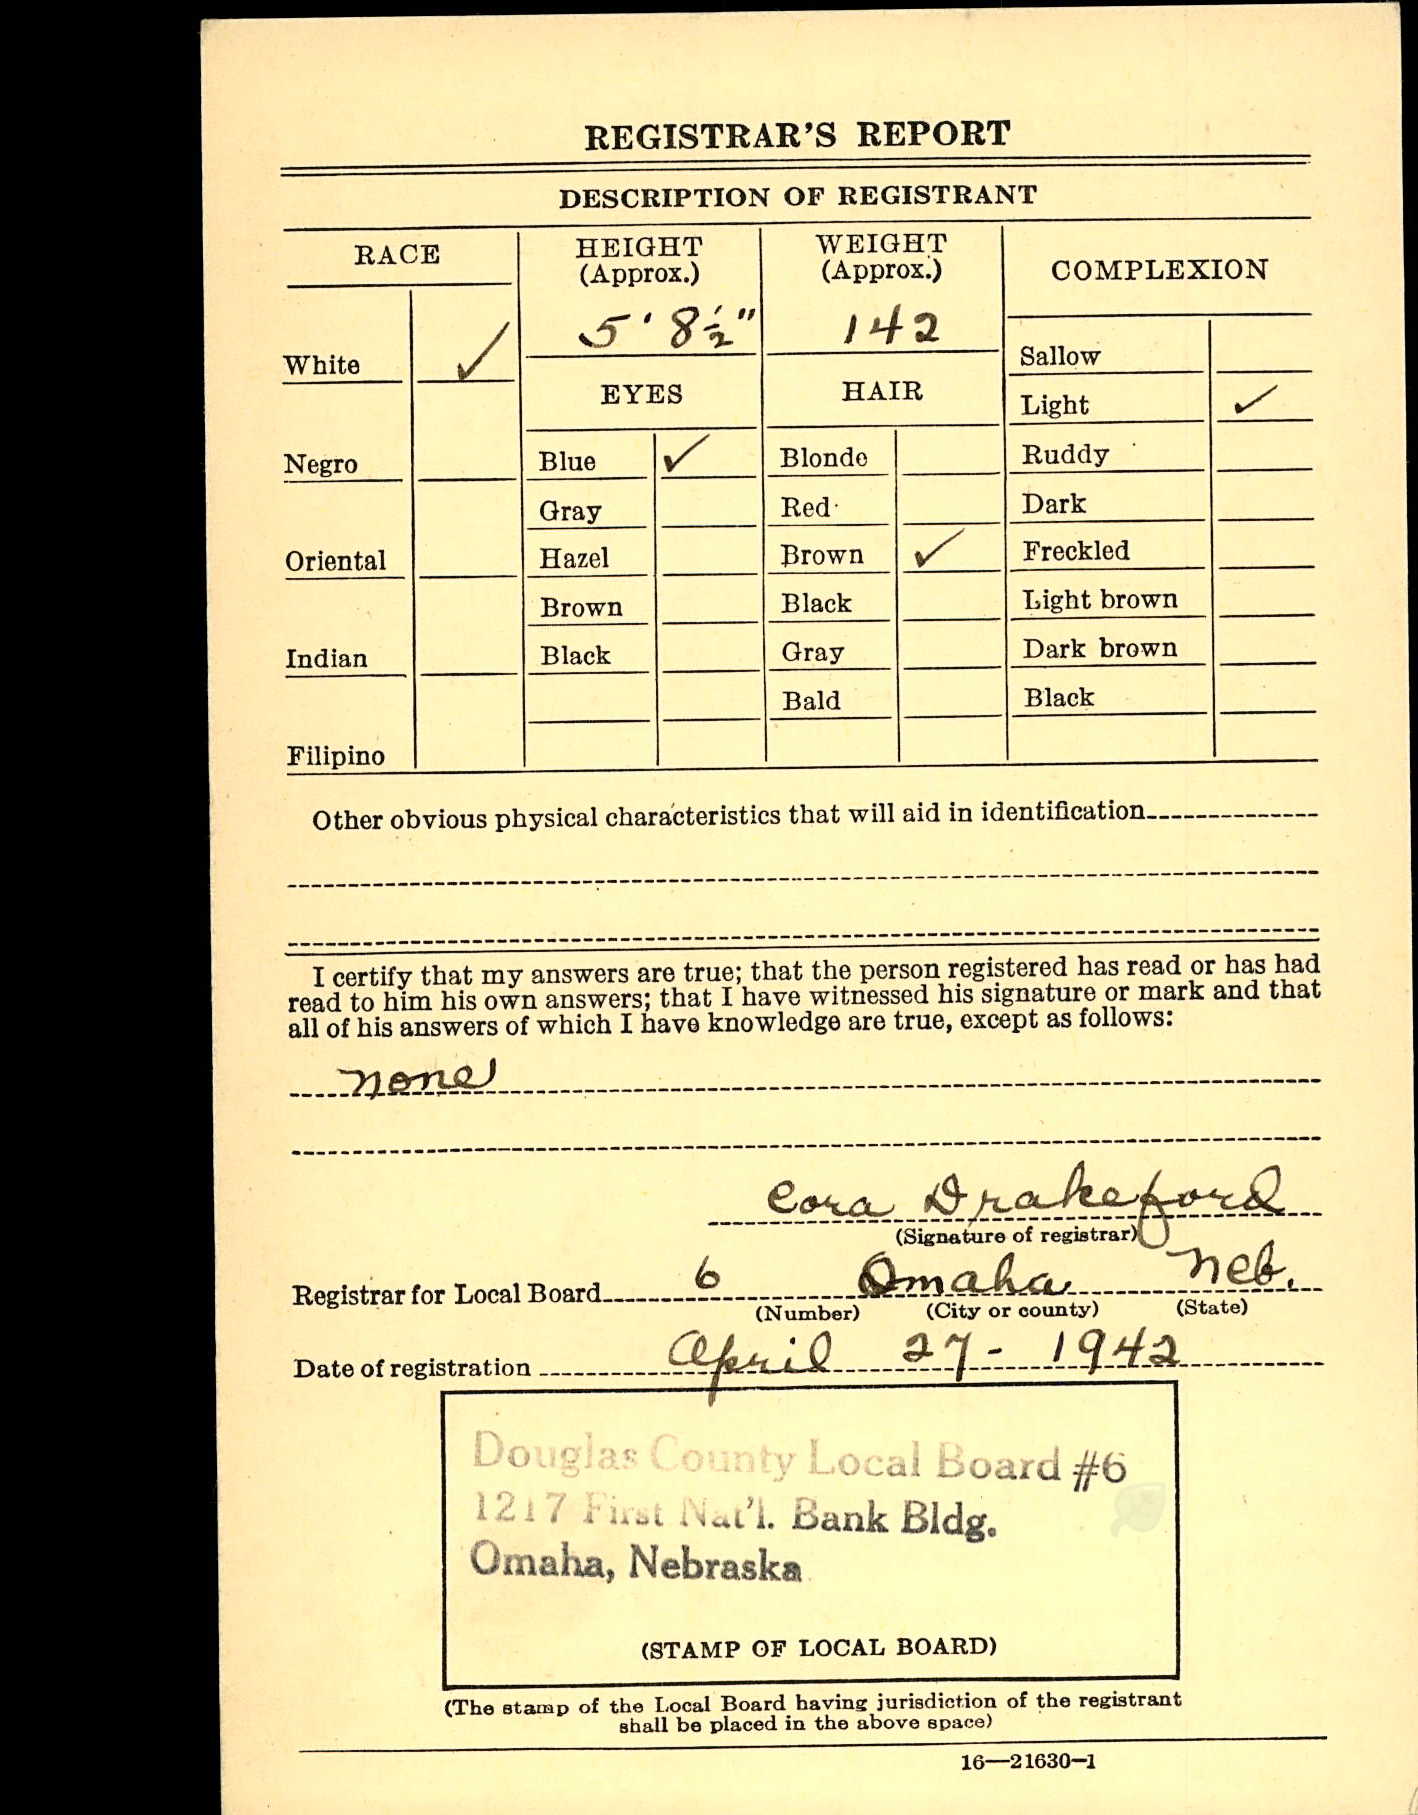 REGISTRAR'S REPORT
DESCRIPTION OF REGISTRANT
RACE
HEIGHT
(Approx.)
WEIGHT
(Approx.)
COMPLEXION
5' 8½"
142
White ✓
Sallow
EYES
HAIR
Light ✓
Negro
Blue ✓
Blonde
Ruddy
Gray
Red
Dark
Oriental
Hazel
Brown ✓
Freckled
Brown
Black
Light brown
Indian
Black
Gray
Dark brown
Bald
Black
Filipino
Other obvious physical characteristics that will aid in identification
I certify that my answers are true; that the person registered has read or has had
read to him his own answers; that I have witnessed his signature or mark and that
all of his answers of which I have knowledge are true, except as follows:
none
Cora Drakeford
(Signature of registrar)
Registrar for Local Board 6 Omaha Neb.
(Number) (City or county) (State)
Date of registration April 27 - 1942
Douglas County Local Board #6
1217 First Nat'l. Bank Bldg.
Omaha, Nebraska
(STAMP OF LOCAL BOARD)
(The stamp of the Local Board having jurisdiction of the registrant
shall be placed in the above space)
16—21630-1